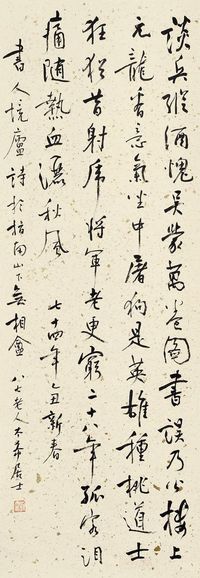 談兵縱酒愧吳蒙萬卷圖書誤乃公樓上
元龍意氣坐中屠狗是英雄種桃道士
狂猶昔射虎將軍老更窮二十八年孤客淚
痛隨熱血灑秋風 七十四年乙丑新春
書人境廬詩於指南山下無相盦 八七老人居士